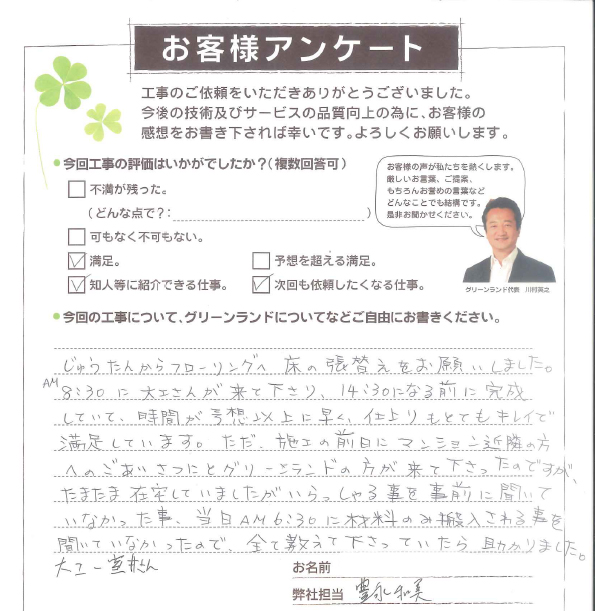 お客様アンケート
工事のご依頼をいただきありがとうございました。
今後の技術及びサービスの品質向上の為に、お客様の
感想をお書き下されば幸いです。よろしくお願いします。
●今回工事の評価はいかがでしたか?(複数回答可)
不満が残った。
(どんな点で?: )
可もなく不可もない。
満足。
予想を超える満足。
知人等に紹介できる仕事。
次回も依頼したくなる仕事。
お客様の声が私たちを熱くします。
厳しいお言葉、ご提案、
もちろんお誉めの言葉など
どんなことでも結構です。
是非お聞かせください。
グリーンランド代表 川村英之
●今回の工事について、グリーンランドについてなどご自由にお書きください。
じゅうたんからフローリングへ 床の張替えをお願いしました。
AM 8:30に大工さんが来て下さり、14:30になる前に完成
していて、時間が予想以上に早く、仕上りもとてもキレイで
満足しています。ただ、施工の前日にマンション近隣の方
へのごあいさつにとグリーンランドの方が来て下さったのですが、
たまたま在宅していましたがいらっしゃる事を事前に聞いて
いなかった事、当日AM6:30に材料のみ搬入される事を
聞いていなかったので、全て教えて下さっていたら助かりました。
大工
お名前
弊社担当 豊永和美